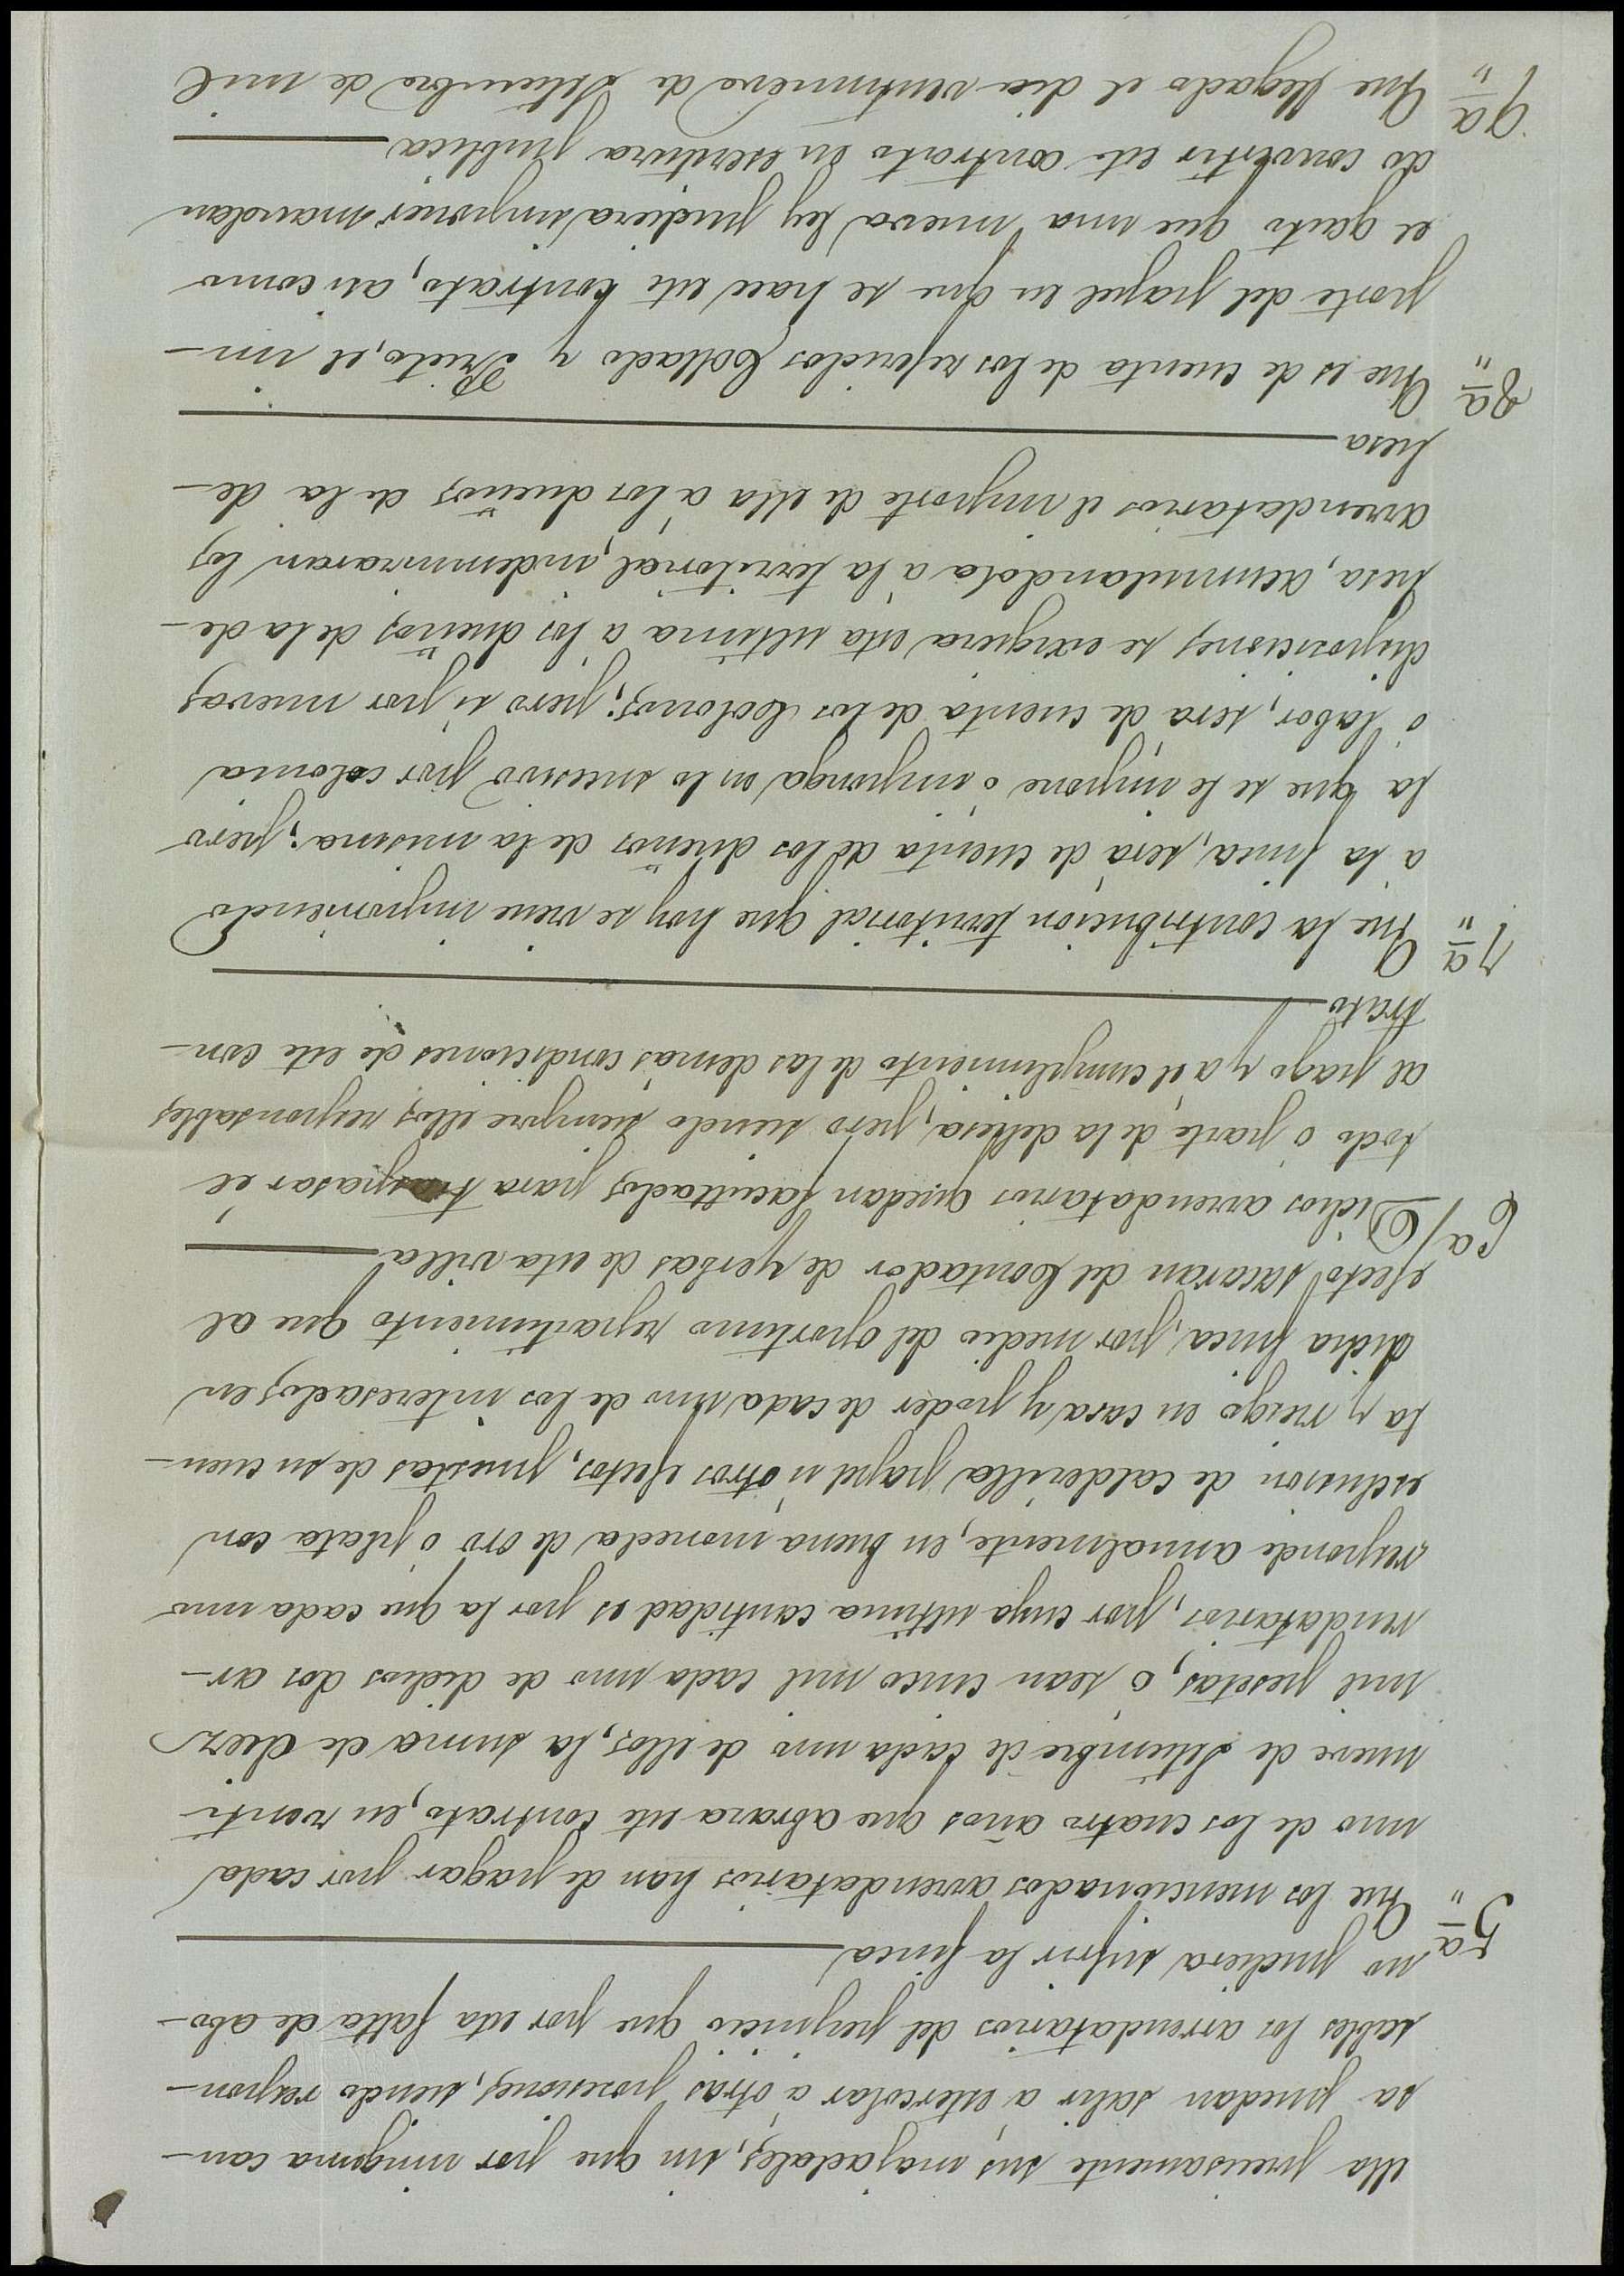 ella precisamente sus majadales, sin que por ninguna cau-
sa puedan salir a estercolar a otras posesiones, siendo respon-
sables los arrendatarios del perjuicio que por esta falta de abo-
no pudiera sufrir la finca
5ª Que los mencionados arrendatarios han de pagar por cada
uno de los cuatro años que abraza este contrato, en venti-
nueve de Setiembre de cada uno de ellos, la suma de diez
mil pesetas, o sean cinco mil cada uno de dichos dos ar-
rendatarios, por cuya ultima cantidad es por la que cada uno
responde anualmente, en buena moneda de oro o plata con
esclusion de calderilla papel u otros efectos, puestas de su cuen-
ta y riesgo en casa y poder de cada uno de los interesados en
dicha finca, por medio del oportuno repartimiento que al
efecto sacaran del Contador de yerbas de esta villa
6ª Dichos arrendatarios quedan facultados para traspasar el
todo o parte de la dehesa, pero siendo siempre ellos responsables
al pago y a el cumplimiento de las demas condiciones de este con-
trato
7ª Que la contribucion territorial que hoy se viene imponiendo
a la finca, será de cuenta de los dueños de la misma; pero
la que se le impone o imponga en lo sucesivo por colonia
o labor, sera de cuenta de los Colonos; pero si por nuevas
disposiciones se exigiera esta ultima a los dueños de la de-
hesa, acumulandola a la territorial, indemnizaran los
arrendatarios el importe de ella a los dueños de la de-
hesa
8ª Que es de cuenta de los referidos Collado y Prieto, el im-
porte del papel en que se hace este Contrato, asi como
el gasto que una nueva ley pudiera imponer mandan
do convertir este contrato en escritura publica
9ª Que llegado el dia ventinueve de Setiembre de mil